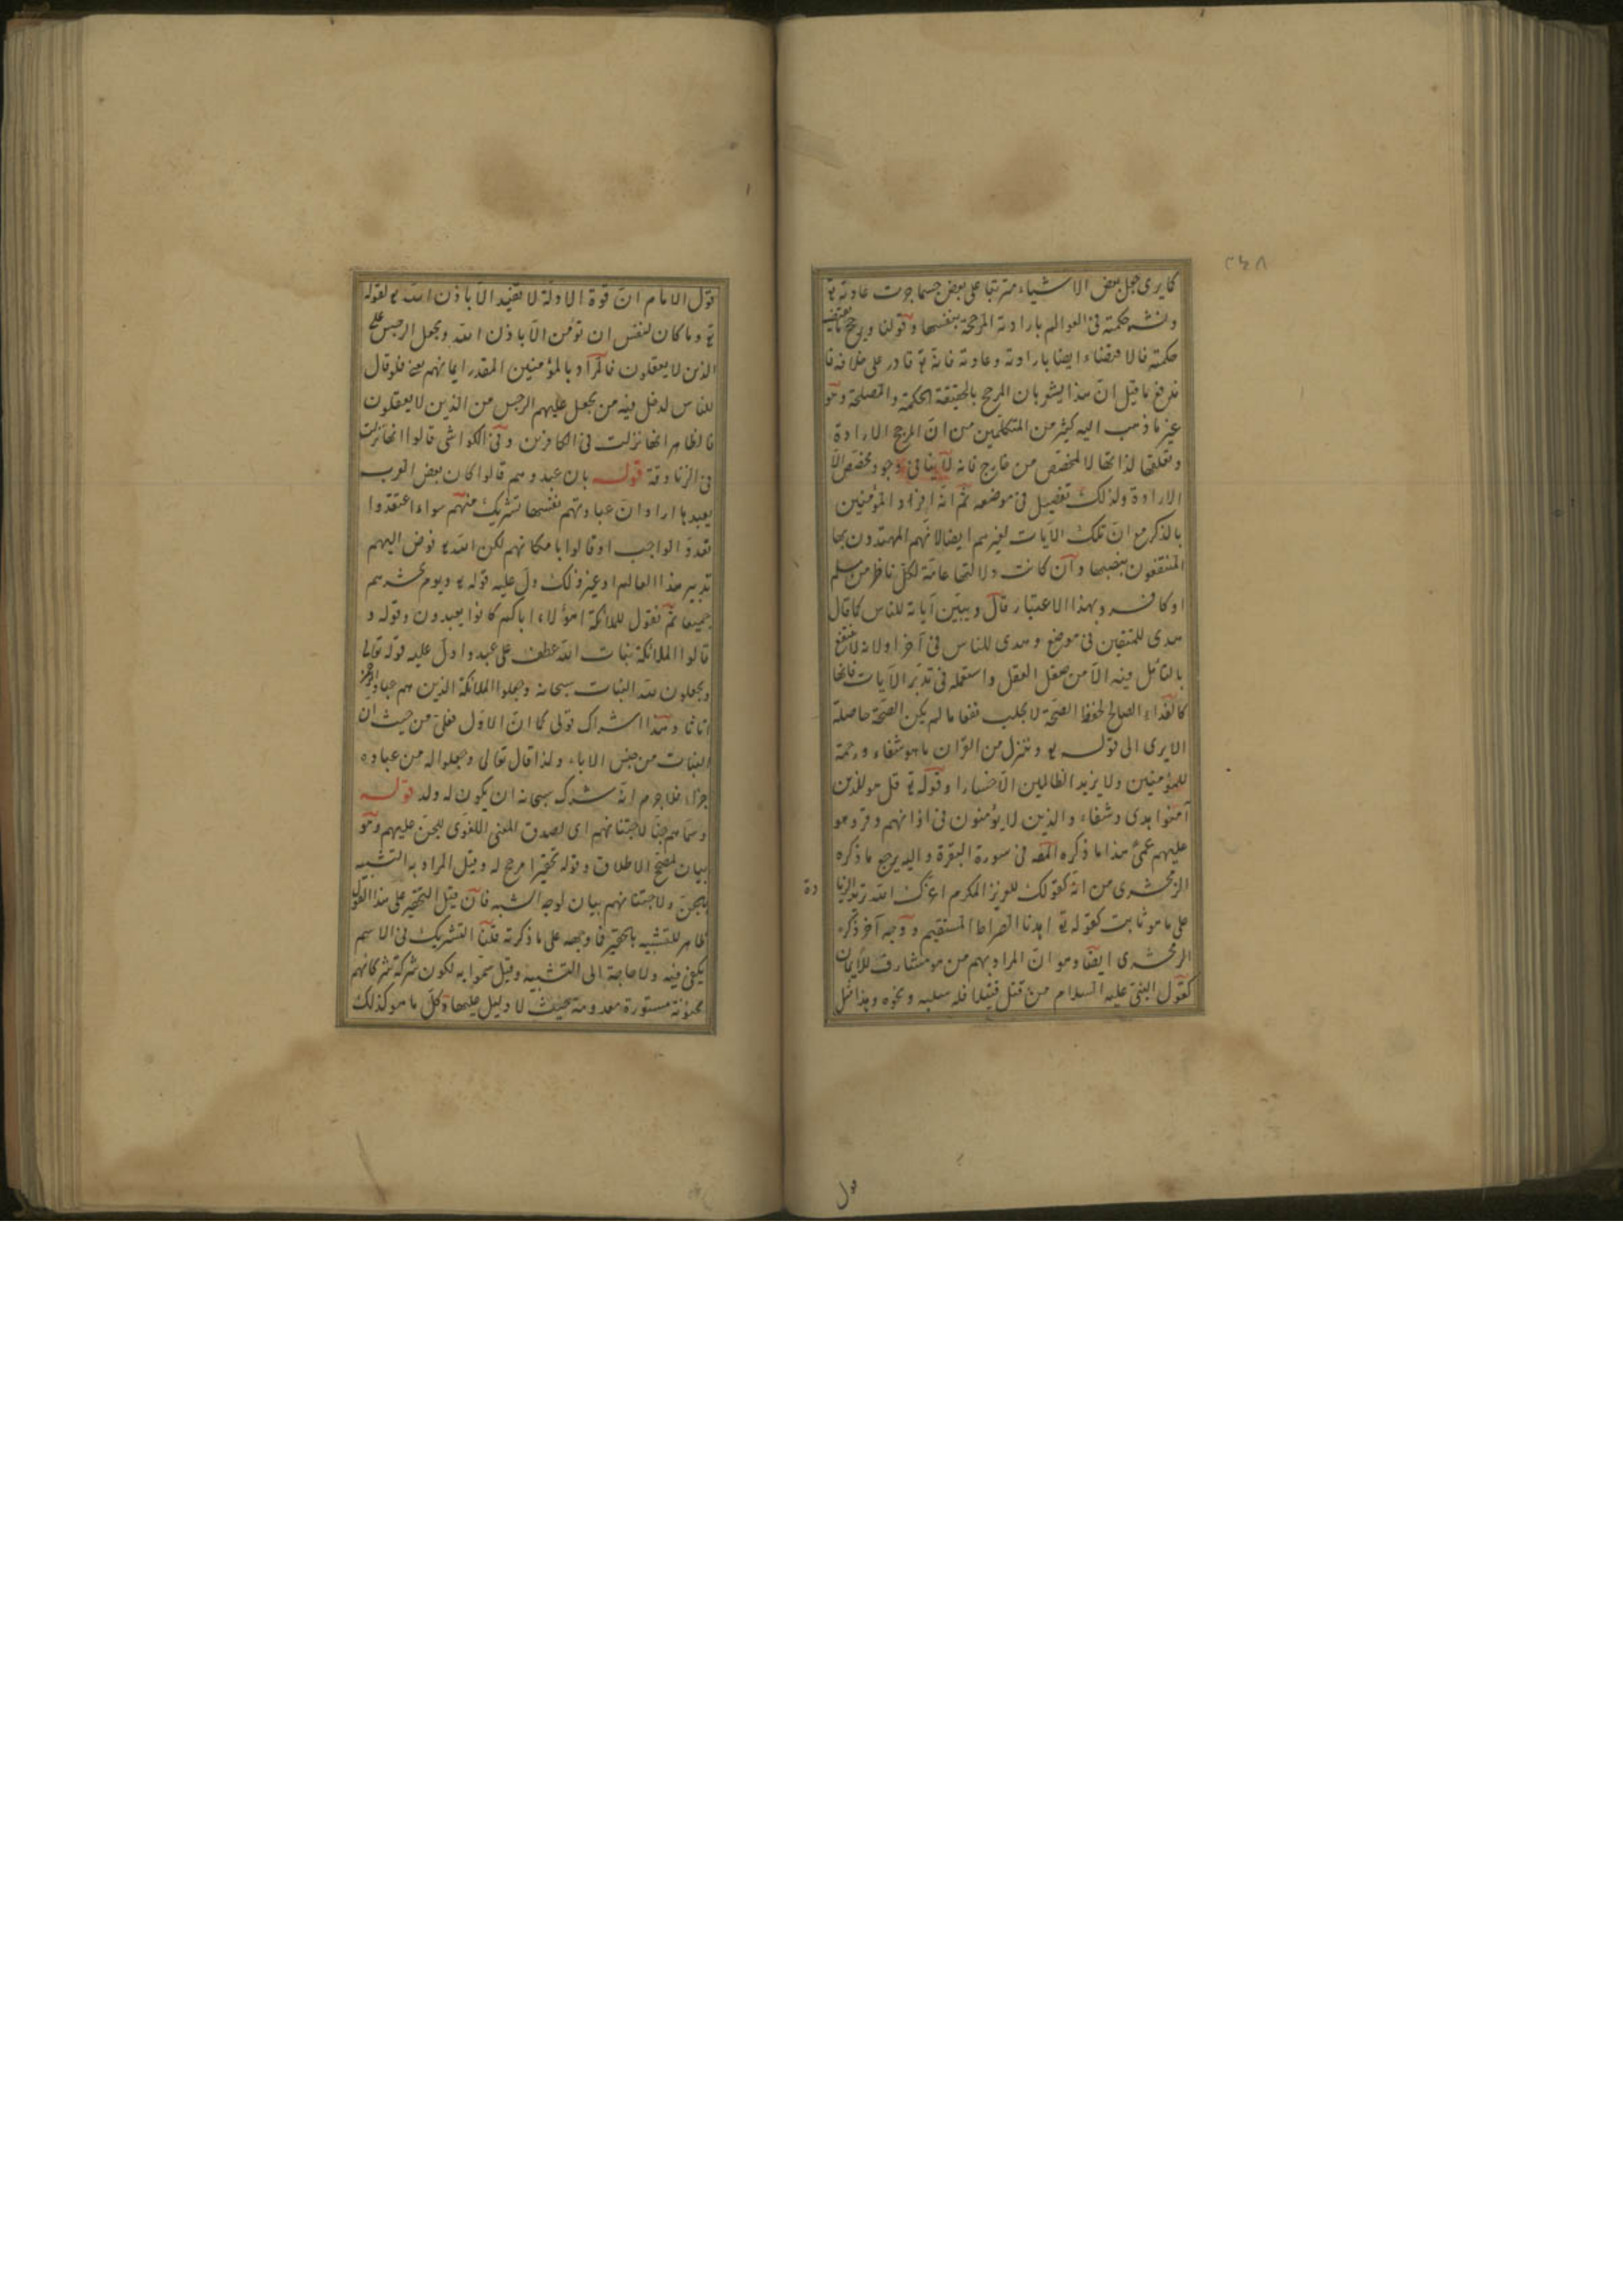 ٢٤٨
كما يرى جعل بعض الاشياء مترتبا على بعض حسبما جرت عادته تع
ونشر حكمته في العوالم بارادته المرجحة بنفسها وقولنا ويرجح ما يقتضيه
حكمته فالاقتضاء ايضا بارادته وعادته فانه تع قادر على خلافه فا
ندفع ما قيل انّ هذا يشعر بان المرجح بالحقيقة الحكمة والمصلحة وهو
غير ما ذهب اليه كثير من المتكلمين من انّ المرجح الارادة
وتعلقها لذاتها لا لمخصص من خارج فانه لا ينافي وجود مخصص الا
الارادة ولذلك تفصيل في موضعه ثمّ انّه افراد المؤمنين
بالذكر مع انّ تلك الآيات لغيرهم ايضا لانهم المهتدون بها
المنتفعون بنصبها وان كانت دلالتها عامة لكل ناظر من مسلم
او كافر وبهذا الاعتبار قال ويبيّن آياته للناس كما قال
هدى للمتقين في موضع وهدى للناس في آخر او لانه لا ينتفع
بالتأمل فيه الا من صقل العقل واستعمله في تدبّر الآيات فانها
كالغذاء الصالح لحفظ الصحة لا يجلب نفعا ما لم يكن الصحة حاصلة
الا يرى الى قوله تع وننزل من القرآن ما هو شفاء ورحمة
للمؤمنين ولا يزيد الظالمين الا خسارا وقوله تع قل هو للذين
آمنوا هدى وشفاء والذين لا يؤمنون في اذانهم وقر وهو
عليهم عمىً هذا ما ذكره المصه في سورة البقرة واليه يرجع ما ذكره
الزمخشرى من انّه كقولك للعزيز المكرم اعزّك الله تريد الزيا
دة
على ما هو ثابت كقوله تع اهدنا الصراط المستقيم ووجه آخر ذكره
الزمخشرى ايضا وهو انّ المراد بهم من هو مشارف للايمان
كقول النبيّ عليه السلام من قتل قتيلا فله سلبه ونحوه وهذا مثل
قول
قول الامام انّ قوة الادلة لا تفيد الّا باذن الله تع لقوله
تع وما كان لنفس ان تؤمن الّا باذن الله ويجعل الرجس على
الذين لا يعقلون فالمراد بالمؤمنين المقدر ايمانهم بعد فلو قال
للناس لدخل فيه من يجعل عليهم الرجس من الذين لا يعقلون
فالظاهر انها نزلت في الكافرين وفي الكواشى قالوا انها نزلت
في الزنادقة قوله بان عبدوهم قالوا كان بعض العرب
يعبدها اراد انّ عبادتهم نفسها تشريك منهم سواء اعتقدوا
تعدد الواجب او قالوا بامكانهم لكن الله تع فوض اليهم
تدبير هذا العالم او غير ذلك دلّ عليه قوله تع ويوم نحشرهم
جميعا ثمّ نقول للملائكة اهؤلاء اياكم كانوا يعبدون وقوله و
قالوا الملائكة بنات الله عطف على عبدوا دلّ عليه قوله تعالى
ويجعلون لله البنات سبحانه وجعلوا الملائكة الذين هم عباد الرحمن
اناثا وهذا اشراك قولى كما انّ الاول فعلىّ من حيث ان
البنات من جنس الاباء ولذا قال تعالى وجعلوا له من عباده
جزءا فلا جرم انّه شرك سبحانه ان يكون له ولد قوله
وسماهم جنّا لاجتنانهم اى لصدق المعنى اللغوى للجنّ عليهم وهو
بيان لمصحح الاطلاق وقوله تحقيرا مرجح له وقيل المراد به التشبيه
بالجنّ ولاجتنانهم بيان لوجه الشبه فان قيل التحقير على هذا القول
ظاهر للتشبيه بالحقير فما وجهه على ما ذكرته قلنا التشريك في الاسم
يكفى فيه ولا حاجة الى التشبيه وقيل سمّوا به لكون شركة شركائهم
مجنونة مستورة معدومة بحيث لا دليل عليها وكلّ ما هو كذلك